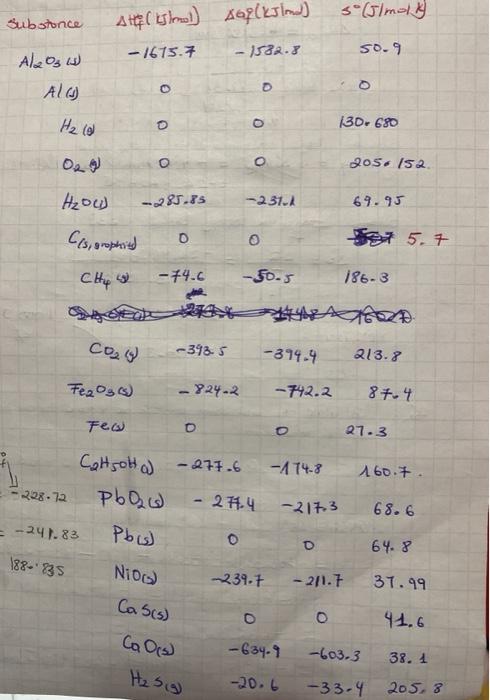 Substance ΔHf°(kJ/mol) ΔGf°(kJ/mol) S°(J/mol.K)
Al2O3(s) -1675.7 -1582.8 50.9
Al(s) 0 0 0
H2(g) 0 0 130.680
O2(g) 0 0 205.152
H2O(l) -285.83 -237.1 69.95
C(s, graphite) 0 0 5.7
CH4(g) -74.6 -50.5 186.3
CO2(g) -393.5 -394.4 213.8
Fe2O3(s) -824.2 -742.2 87.4
Fe(s) 0 0 27.3
C2H5OH(l) -277.6 -174.8 160.7.
-228.72
PbO2(s) -277.4 -217.3 68.6
= -241.83
Pb(s) 0 0 64.8
188.835
NiO(s) -239.7 -211.7 37.99
CaS(s) 0 0 41.6
CaO(s) -634.9 -603.3 38.1
H2S(g) -20.6 -33.4 205.8